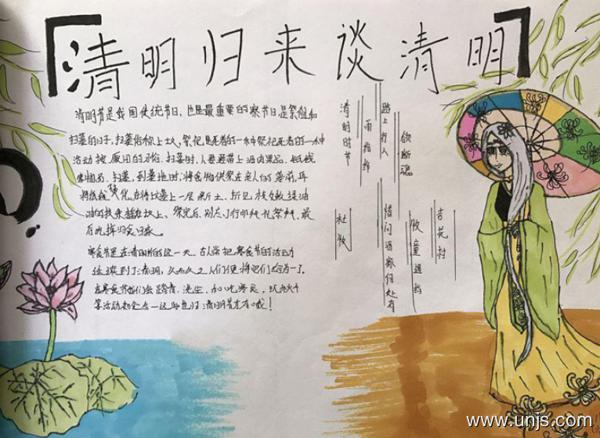 清明归来谈清明
清明节是我国传统节日,也是最重要的祭节日,是祭祖和
扫墓的日子,扫墓俗称上坟,祭祀死者的一种祭祀死者的一种
活动,按 旧的习俗,扫墓时,人要 带上酒肉果品,纸钱
等物品,扫墓,到墓地时,将食物供祭在亲人的墓前,再
将纸钱焚化,为坟墓上一层新土,折几枝嫩绿
的枝条插在坟上,然后 叩头行礼祭拜,最
后 归家
寒食节是在清明节的这一天,古人常把寒食节的活动
延续到了清明,久而久之人们便将它们合为一了。
在寒食节 踏青、
等活动
清明时节
雨纷纷
路上行人
欲断魂
杜牧
借问酒家何处有
牧童遥指
杏花村
www.unjs.com